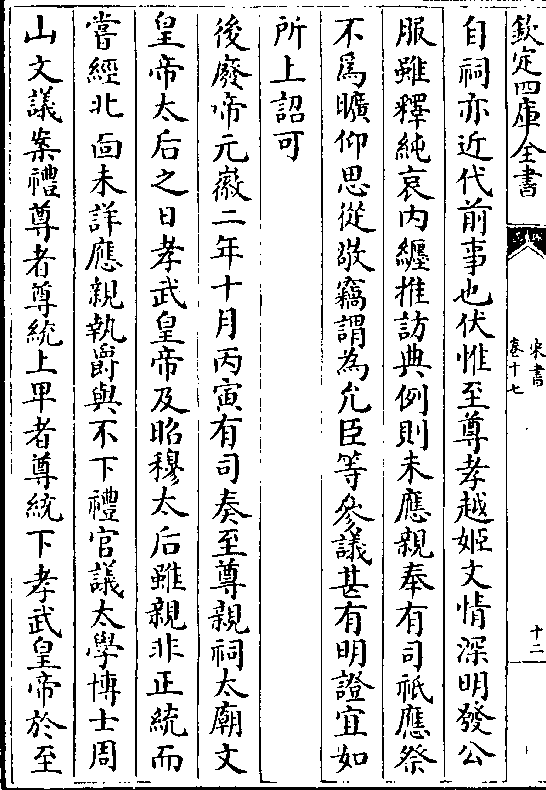 欽定四庫全書
宋書
卷十七
十二
自祠亦近代前事也伏惟至尊孝越姬文情深明發公
服雖釋純哀内纒推訪典例則未應親奉有司祗應祭
不為曠仰思從敬竊謂為允臣等參議甚有明證宜如
所上詔可
後廢帝元徽二年十月丙寅有司奏至尊親祠太廟文
皇帝太后之日孝武皇帝及昭穆太后雖親非正統而
嘗經北面未詳應親執爵與不下禮官議太學博士周
山文議案禮尊者尊統上卑者尊統下孝武皇帝於至